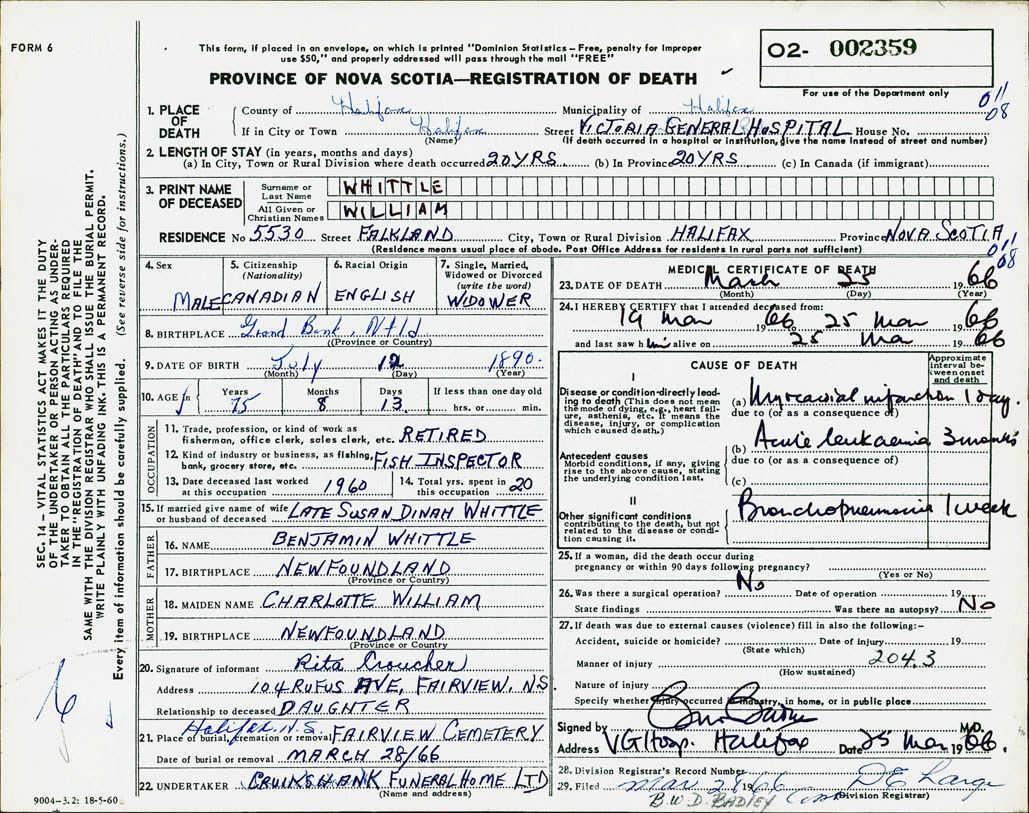 FORM 6
This form, if placed in an envelope, on which is printed "Dominion Statistics – Free, penalty for improper
use $50," and properly addressed will pass through the mail "FREE"
PROVINCE OF NOVA SCOTIA—REGISTRATION OF DEATH
02- 002359
For use of the Department only
011
08
1. PLACE OF DEATH County of Halifax Municipality of Halifax
If in City or Town Halifax Street VICTORIA GENERAL HOSPITAL House No.
(Name) (If death occurred in a hospital or institution, give the name instead of street and number)
2. LENGTH OF STAY (in years, months and days)
(a) In City, Town or Rural Division where death occurred 20 YRS. (b) In Province 20 YRS. (c) In Canada (if immigrant)
3. PRINT NAME OF DECEASED
Surname or Last Name WHITTLE
All Given or Christian Names WILLIAM
RESIDENCE No 5530 Street FALKLAND City, Town or Rural Division HALIFAX Province NOVA SCOTIA
(Residence means usual place of abode. Post Office Address for residents in rural parts not sufficient)
011
08
4. Sex MALE
5. Citizenship (Nationality) CANADIAN
6. Racial Origin ENGLISH
7. Single, Married, Widowed or Divorced (write the word) WIDOWER
8. BIRTHPLACE Grand Bank, Nfld
(Province or Country)
9. DATE OF BIRTH July 12 1890
(Month) (Day) (Year)
10. AGE Years 75 Months 8 Days 13 If less than one day old hrs. or min.
OCCUPATION
11. Trade, profession, or kind of work as
fisherman, office clerk, sales clerk, etc. RETIRED
12. Kind of industry or business, as fishing,
bank, grocery store, etc. FISH INSPECTOR
13. Date deceased last worked at this occupation 1960
14. Total yrs. spent in this occupation 20
15. If married give name of wife
or husband of deceased LATE SUSAN DINAH WHITTLE
FATHER
16. NAME BENJAMIN WHITTLE
17. BIRTHPLACE NEWFOUNDLAND
(Province or Country)
MOTHER
18. MAIDEN NAME CHARLOTTE WILLIAM
19. BIRTHPLACE NEWFOUNDLAND
(Province or Country
20. Signature of informant Rita Croucher
Address 104 RUFUS AVE, FAIRVIEW, N.S
Relationship to deceased DAUGHTER
Halifax, N.S.
21. Place of burial, cremation or removal FAIRVIEW CEMETERY
Date of burial or removal MARCH 28/66
22. UNDERTAKER CRUIKSHANK FUNERAL HOME LTD
(Name and address)
9004-3.2: 18-5-60
MEDICAL CERTIFICATE OF DEATH
23. DATE OF DEATH March 25 1966
(Month) (Day) (Year)
24. I HEREBY CERTIFY that I attended deceased from:
19 Mar 1966, 25 Mar 66
and last saw him alive on 25 Mar 1966
CAUSE OF DEATH
Approximate interval between onset and death
I
Disease or condition directly leading to death (This does not mean
the mode of dying, e.g., heart failure, asthenia, etc. It means the
disease, injury, or complication which caused death.)
(a) Myocardial infarction 1 day.
due to (or as a consequence of)
(b) Acute leukaemia 3 months
Antecedent causes
Morbid conditions, if any, giving
rise to the above cause, stating
the underlying condition last.
due to (or as a consequence of)
(c)
II
Other significant conditions
contributing to the death, but not
related to the disease or condition causing it.
Bronchopneumonia 1 week
25. If a woman, did the death occur during
pregnancy or within 90 days following pregnancy?
(Yes or No)
26. Was there a surgical operation? No Date of operation 19
State findings Was there an autopsy? No
27. If death was due to external causes (violence) fill in also the following:–
Accident, suicide or homicide? Date of injury 19
(State which)
Manner of injury 204.3
(How sustained)
Nature of injury
Specify whether injury occurred in industry, in home, or in public place
Signed by M.D.
Address VG Hosp. Halifax Date 25 Mar 1966.
28. Division Registrar's Record Number
29. Filed Mar 28 1966 D E Large
(Division Registrar)
B.W.D. BADLEY
SEC. 14 – VITAL STATISTICS ACT MAKES IT THE DUTY
OF THE UNDERTAKER OR PERSON ACTING AS UNDER-
TAKER TO OBTAIN ALL THE PARTICULARS REQUIRED
IN THE "REGISTRATION OF DEATH" AND TO FILE THE
SAME WITH THE DIVISION REGISTRAR WHO SHALL ISSUE THE BURIAL PERMIT.
WRITE PLAINLY WITH UNFADING INK. THIS IS A PERMANENT RECORD.
Every item of information should be carefully supplied. (See reverse side for instructions.)